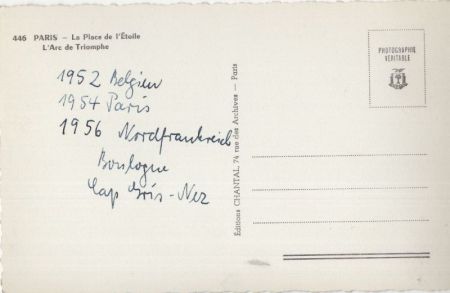 446 PARIS – La Place de l'Étoile
L'Arc de Triomphe
1952 Belgien
1954 Paris
1956 Nordfrankreich
Boulogne
Cap Gris-Nez
Éditions CHANTAL, 74 rue des Archives — Paris
PHOTOGRAPHIE
VÉRITABLE